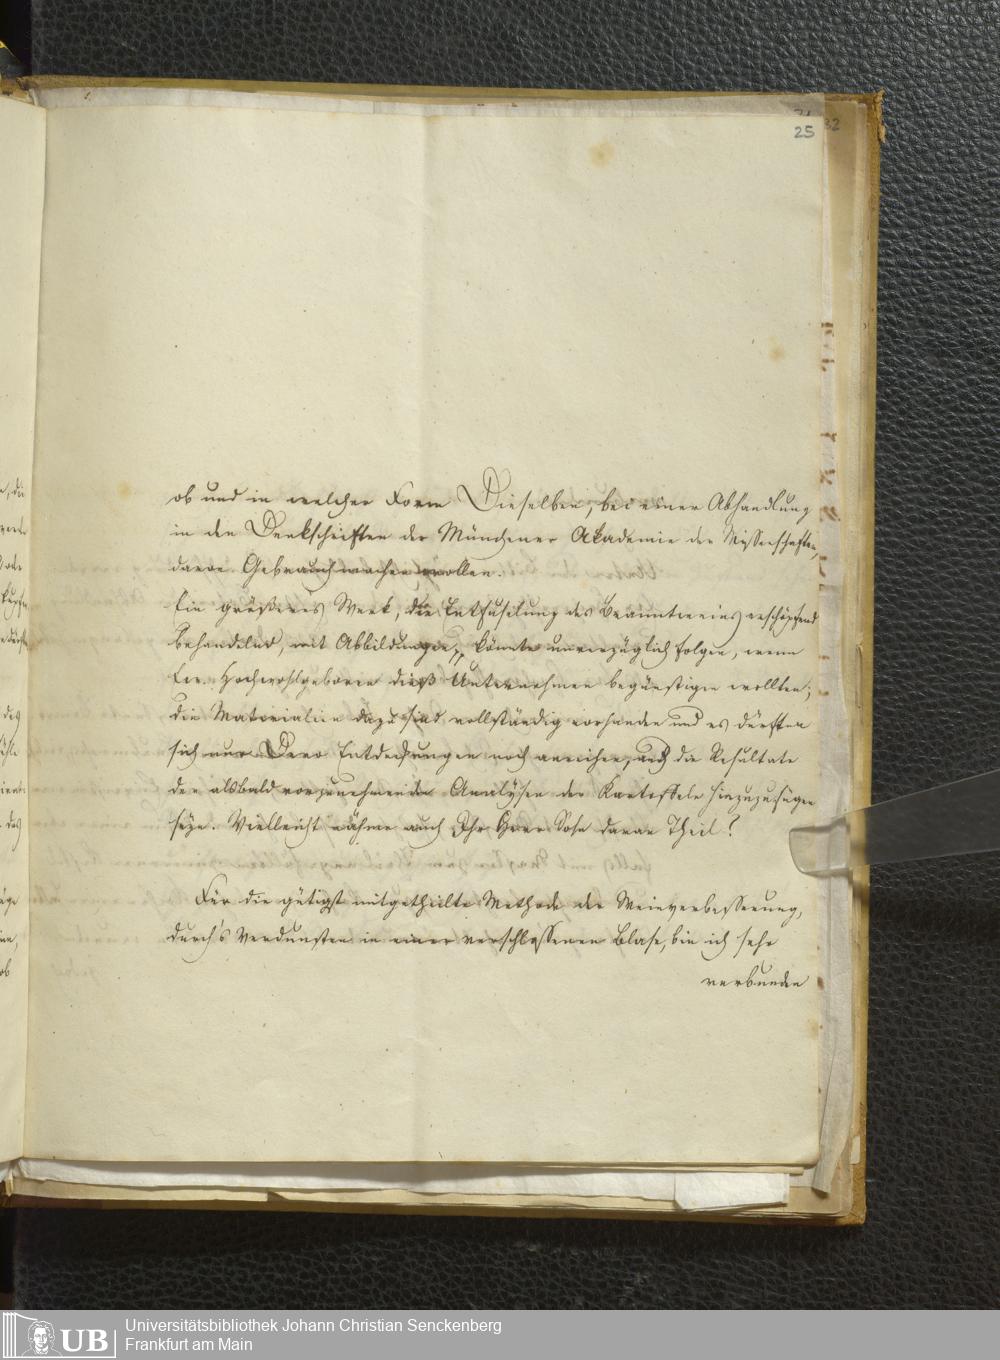 25
32
ob und in welcher Form Dieselben, bei einer Abhandlung
in den Denkschriften der Münchener Akademie der Wissenschaften,
davon Gebrauch machen wollen.
Ein größeres Werk, die Entfuselung des Branntweins erschöpfend
behandelnd, mit Abbildungen, könnte unverzüglich folgen, wenn
Ew. Hochwohlgeboren dieß Unternehmen begünstigen wollten;
die Materialien dazu sind vollständig vorhanden und es dürften
sich nur Dero Entdeckungen noch anreihen, und die Resultate
der alsbald vorzunehmenden Analysen der Kartoffeln hinzuzufügen
seyn. Vielleicht nähme auch Ihr Herr Sohn daran Theil?
Für die gütigst mitgetheilte Methode der Weinverbesserung,
durch's Verdunsten in einer verschlossenen Blase, bin ich sehr
verbunden
UB
Universitätsbibliothek Johann Christian Senckenberg
Frankfurt am Main